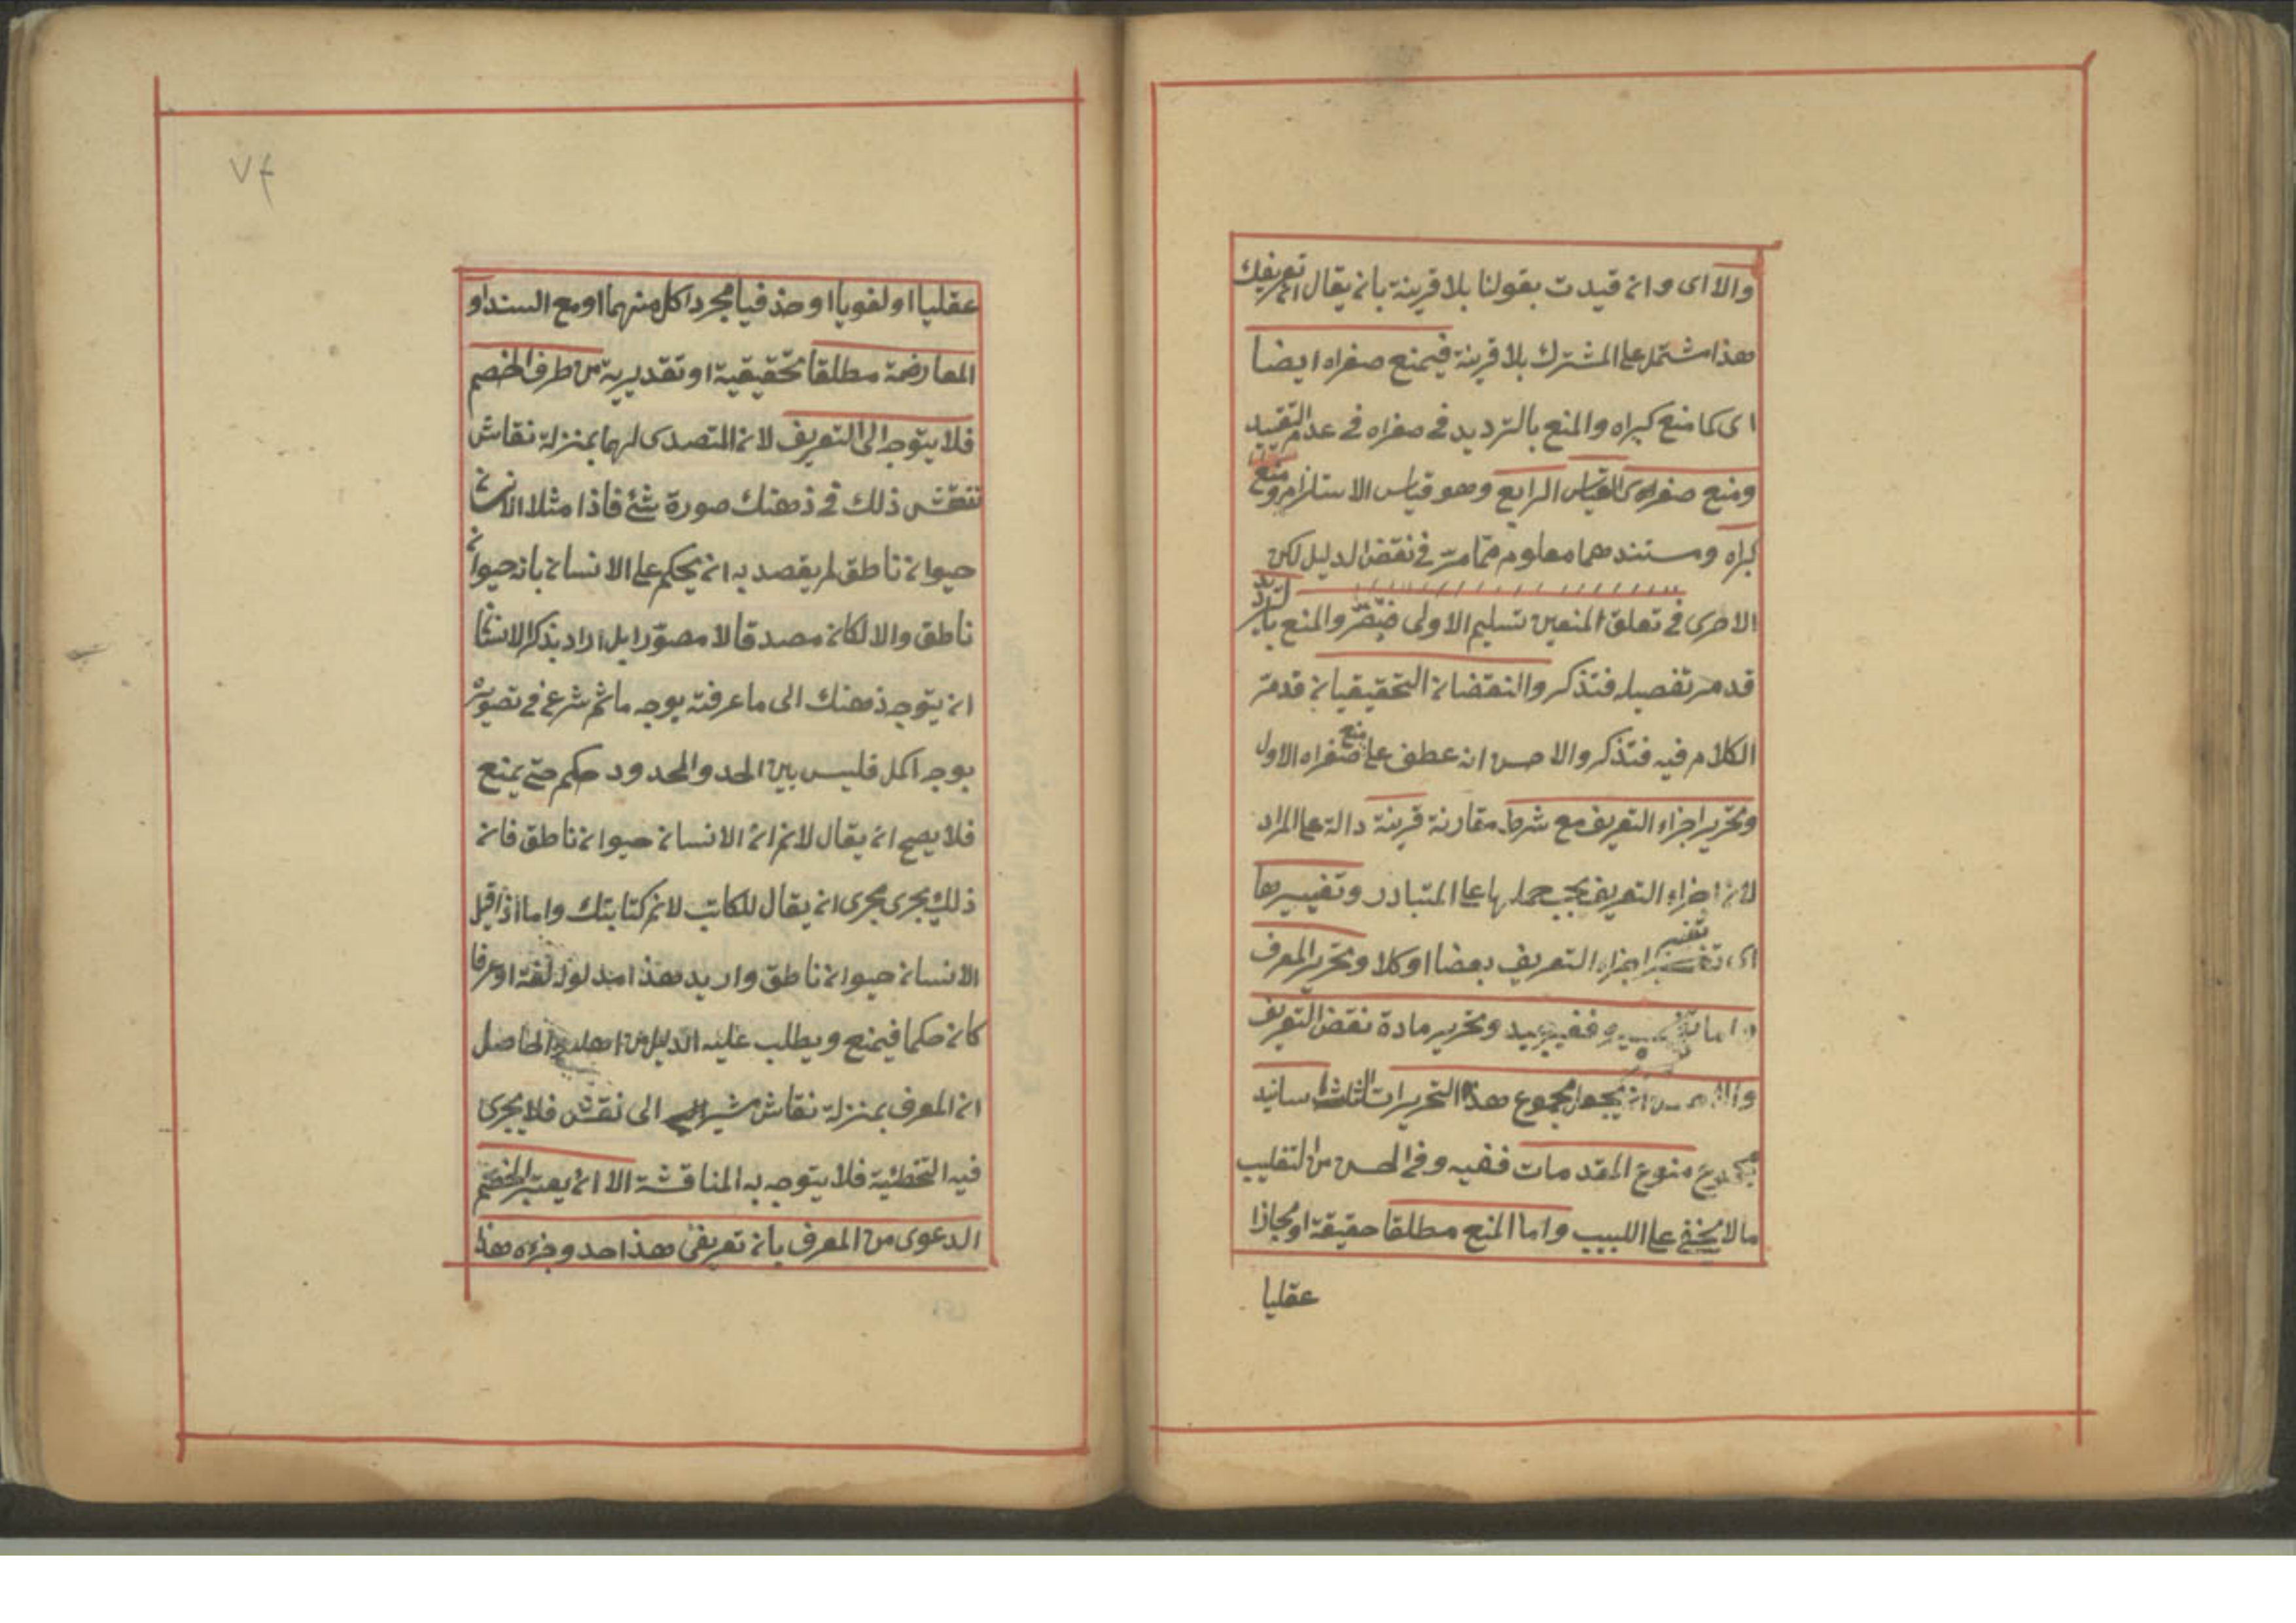 والا اى وان قيدت بقولنا بلا قرينة بان يقال ان تعريفك
هذا مشتمل على المشترك بلا قرينة فيمنع صغراه ايضا
اى كما منع كبراه والمنع بالترديد فى صغراه فى عدم التقييد
ومنع صغراه القياس الرابع وهو قياس الاستلزام ومنع
كبراه ومستندهما معلوم مما مر فى نقض الدليل لكن
الاحرى فى تعلق المنعين تسليم الاولى والمنع
قد مر تفصيله فتذكر والنقضان التحقيقيان قد مر
الكلام فيه فتذكر والاحسن انه عطف على منع صغراه الاول
وتحرير اجزاء التعريف مع شرط مقارنة قرينة دالة على المراد
لان اجزاء التعريف يجب حملها على المتبادر وتغييرها
اى تغيير اجزاء التعريف بعضا او كلا وتحرير المعرف
واما ففيه بعيد وتحرير مادة نقض التعريف
والاحسن ان يجعل مجموع هذه التحريرات الثلث اسانيد
مجموع منوع المقدمات ففيه وفى الحسن من التغليب
مالا يخفى على اللبيب واما المنع مطلقا حقيقة او مجازا
عقليا
٧٤
عقليا او لغويا او حذفيا مجردا كل منهما او مع السند او
المعارضة مطلقا تحقيقية او تقديرية من طرف الخصم
فلا يتوجه الى التعريف لان المتصدى لهما بمنزلة نقاش
نتقش ذلك فى ذهنك صورة شئ فاذا مثلا الانسان
حيوان ناطق لم يقصد به ان يحكم على الانسان بانه حيوان
ناطق والا لكان مصدقا لا مصورا بل اراد بذكر الانسان
ان يتوجه ذهنك الى ما عرفته بوجه ما ثم شرع فى تصويره
بوجه اكمل فليس بين الحد والمحدود حكم حتى يمنع
فلا يصح ان يقال لانم ان الانسان حيوان ناطق فان
ذلك يجرى مجرى ان يقال للكاتب لانم كتابتك واما اذا قيل
الانسان حيوان ناطق واريد هذا مدلوله لغة او عرفا
كان حكما فيمنع ويطلب عليه الدليل من اهله والحاصل
ان المعرف بمنزلة نقاش مشير الى نقش فلا يجرى
فيه التخطئية فلا يتوجه به المناقشة الا ان يعتبر الخصم
الدعوى من المعرف بان تعريفى هذا حد وجزءه هذا